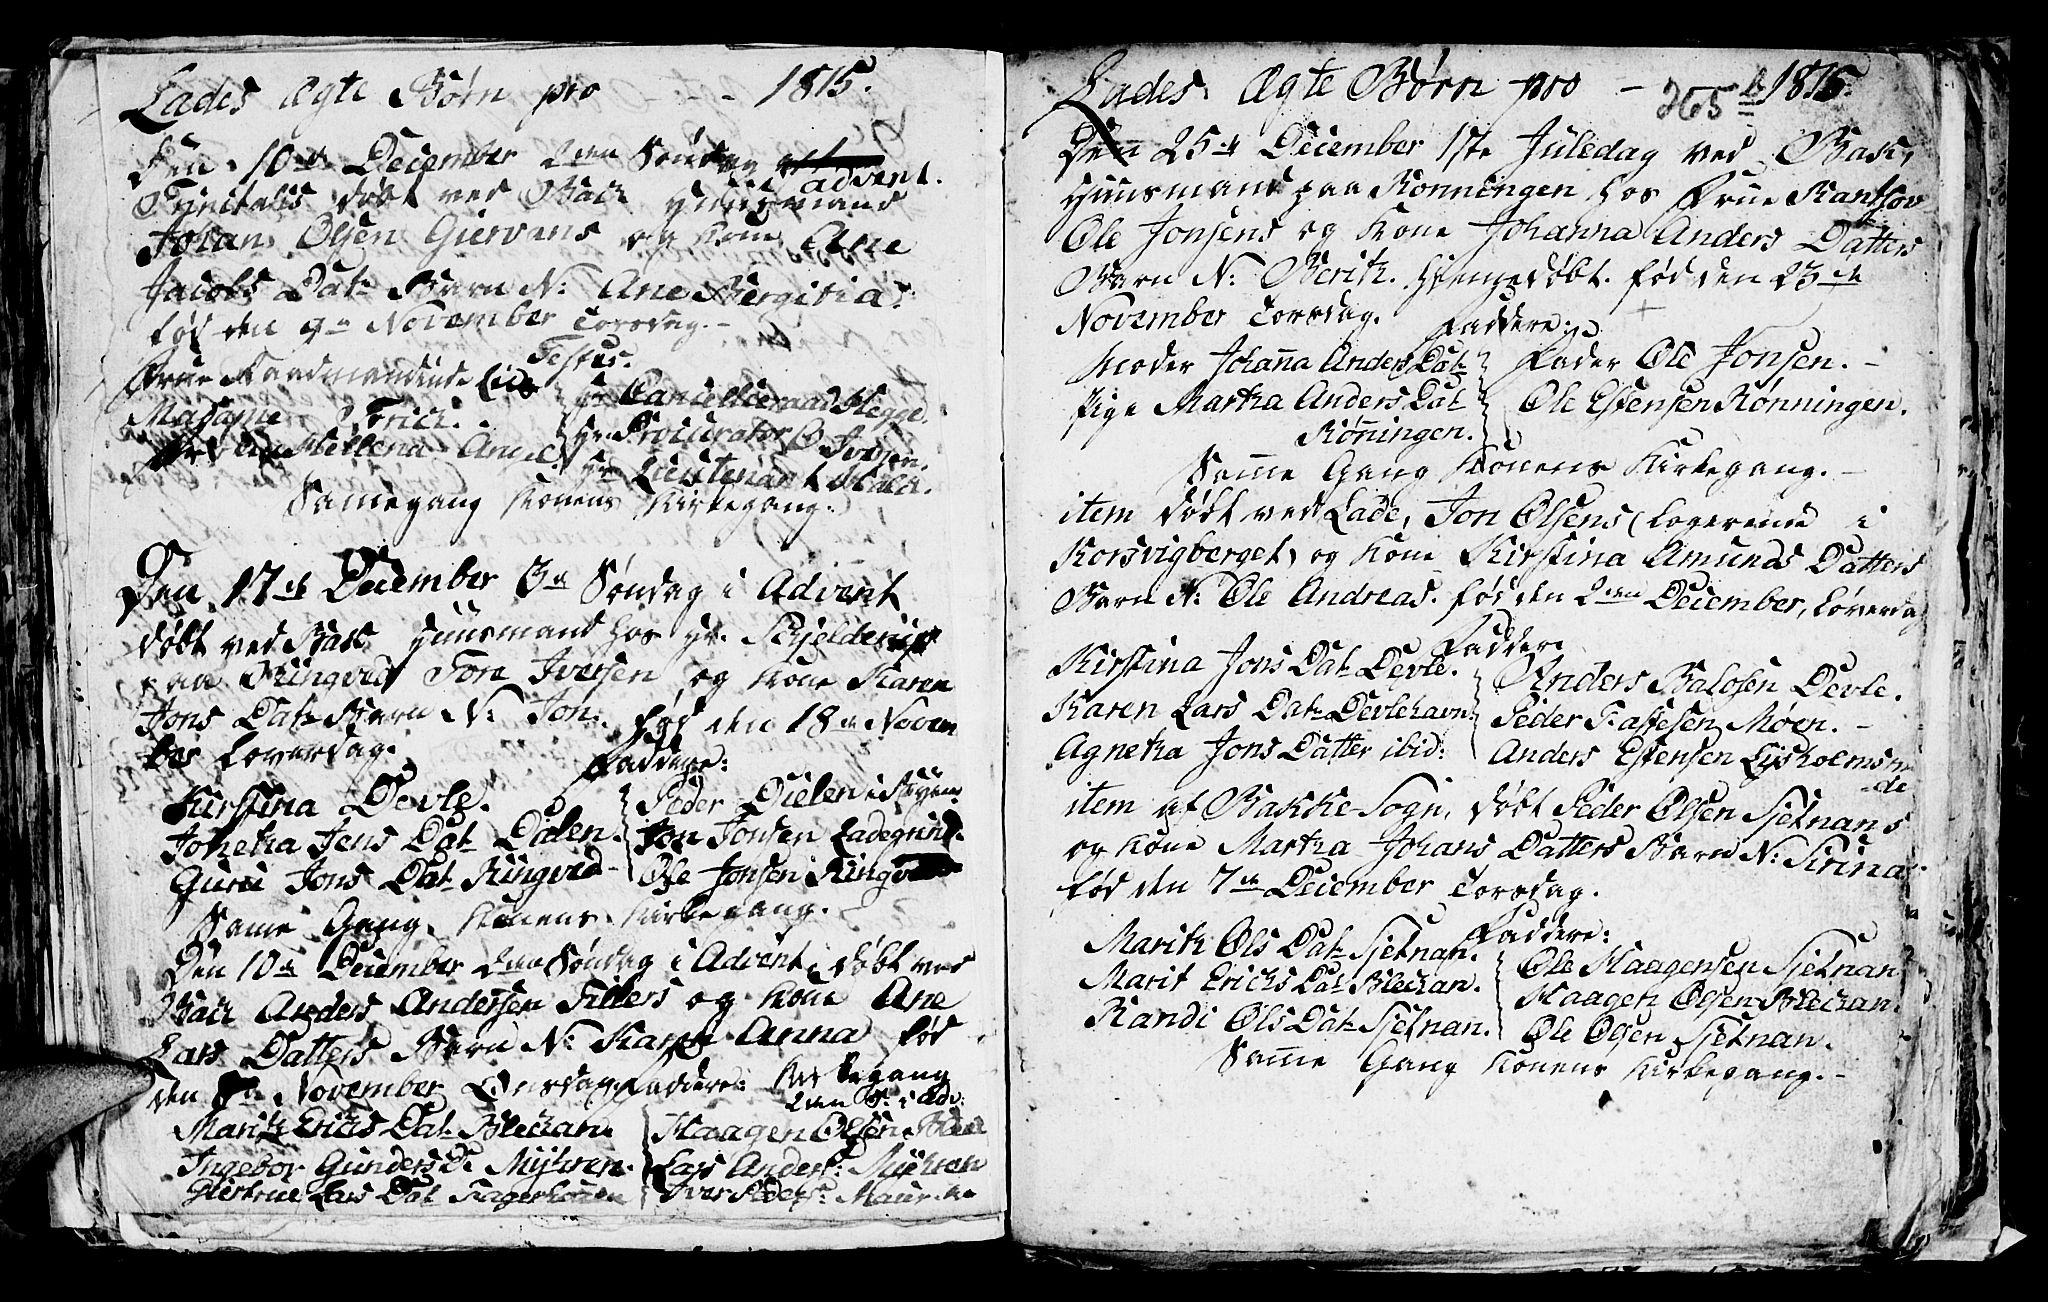 Lades ægte Børn pro - - 1815.
Den 10de December 2den Søndag advent.
døbt ved Back Huusmand
Johan Olsen Giervans og Kone Ane
Jacobs Dat. Barn N: Ane Bergitia.
fød den 9de November Torsdag. -
Testes.
Frue Raadmandinde Lie
Hr Cancellieraad Hegge.
Madame Friis.
Hr Procurator Iversen.
Hellena Angel
Hr Lieutenant
Samegang Konens Kirkegang.
Den 17de December 3die Søndag i Advent
døbt ved Back Huusmand hos Hr. Schjelderup
paa Ringved Tore Iversen og Kone Karen
Jons Dat. Barn N: Jon. fød den 18de Novem
ber Løverdag.
Faddere:
Kirstina Devle. Peder Dielen i
Johetha Jens Dat. Dalen. Jon Jonsen Ladegrind.
Guru Jons Dat. Ringved Ole Jonsen Ringved
Same Gang Konens Kirkegang.
Den 10de December 2den Søndag i Advent, døbt ved
Back Anders Andersen Tillers og Kone Ane
Lars Datters Barn N: Karen Anna fød
den 8de November Onsdag Faddere: Kirkegang
2den S: i Adv:
Marith Erichs Dat. Blechan Haagen Olsen
Ingebor Gunders D. Myhren. Lars Anders: Myhren
Giertrue Lars Dat Iver Peders:
Lades Ægte Børn pro - 1815
265
Den 25de December 1ste Juledag ved Back,
Huusmand paa Rønningen hos Frue Rantzov
Ole Jonsens og Kone Johanna Anders Datters
Barn N: Berith. Hiemmedøbt. fød den 23de
November Torsdag. Faddere:
Moder Johanna Anders Dat. Fader Ole Jonsen. -
Pige Martha Anders Dat Ole Estensen Rønningen.
Rønningen.
Samme Gang Konens Kirkegang. -
item døbt ved Lade, Jon Olsens (logerende i
Korsvigberget) og Kone Kirstina Amunds Datters
Barn N: Ole Andreas. fød den 2den December, Løverdag
Faddere
Kirstina Jons Dat. Devle. Anders Balosen Devle.
Karen Lars Dat. Devlehavn. Peder Rassesen Møen. -
Agnetha Jons Datter ibid: Anders Estensen Lysholms
-de
item af Bakke-Sogn, døbt Peder Olsen Sjetnans
og Kone Martha Johans Datters Barn N: Sirina.
fød den 7de December Torsdag.
Faddere:
Marith Ols Dat. Sjetnan. Ole Haagensen Sjetnan
Marit Erichs Dat Blechan. Haagen Olsen Blechan.
Randi Ols Dat. Sjetnan. Ole Olsen Sjetnan.
Samme Gang Konens Kirkegang. -